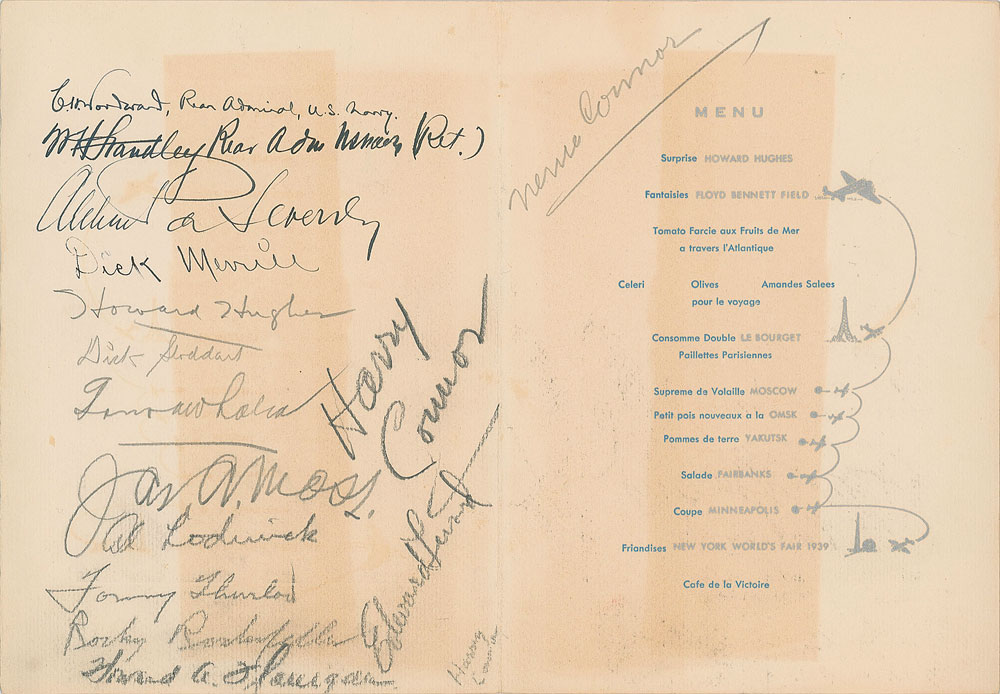 C.H. Woodward, Rear Admiral, U.S. Navy.
WH Standley Rear Adm (Ret.)
de Seversky
Dick Merrill
Howard Hughes
Dick Stoddart
Jas. A. Moss.
Al Lodwick
Tommy Thurlow
Rocky
Howard A. Flanigan
Harry
Connor
Edward
Harry
Connor
Connor
MENU
Surprise HOWARD HUGHES
Fantaisies FLOYD BENNETT FIELD
Tomato Farcie aux Fruits de Mer
a travers l'Atlantique
Celeri Olives Amandes Salees
pour le voyage
Consomme Double LE BOURGET
Paillettes Parisiennes
Supreme de Volaille MOSCOW
Petit pois nouveaux a la OMSK
Pommes de terre YAKUTSK
Salade FAIRBANKS
Coupe MINNEAPOLIS
Friandises NEW YORK WORLD'S FAIR 1939
Cafe de la Victoire